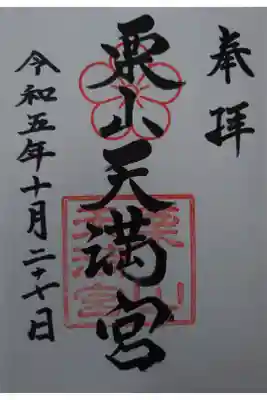 奉拝
栗山天満宮
令和五年十月二十七日
栗山
天満宮